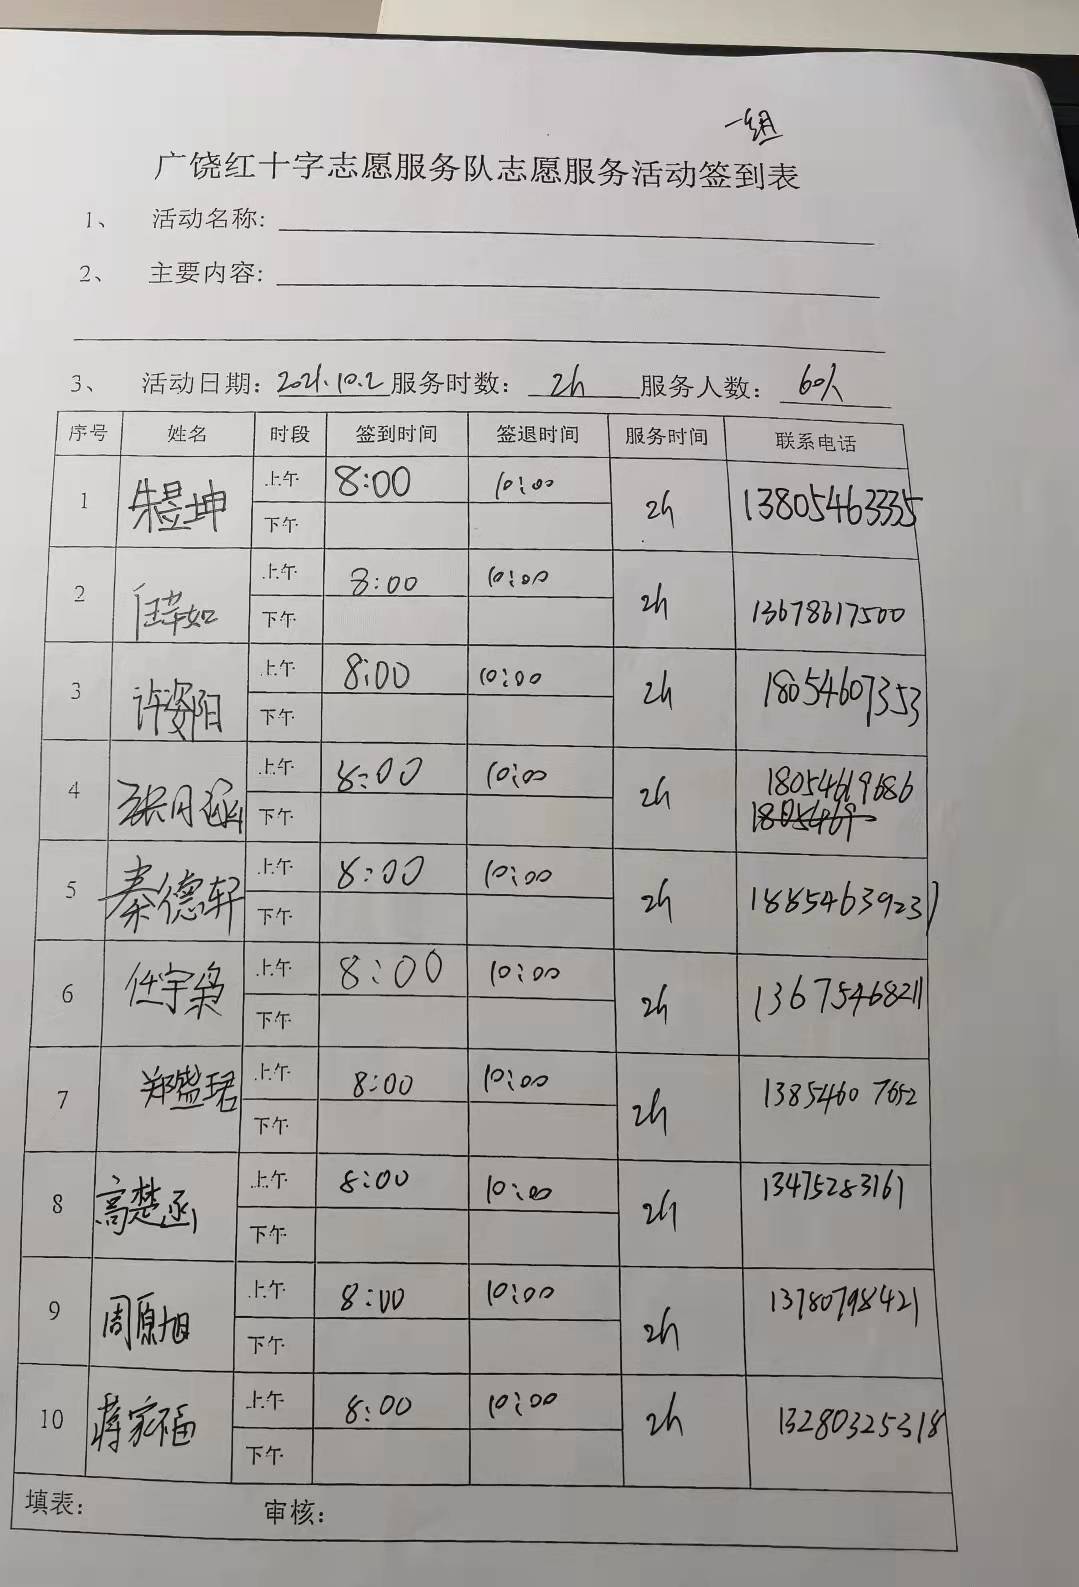 一组
广饶红十字志愿服务队志愿服务活动签到表
1、 活动名称:
2、 主要内容:
3、 活动日期: 2021.10.2 服务时数: 2h 服务人数: 60人
序号 姓名 时段 签到时间 签退时间 服务时间 联系电话
1 朱昱坤 上午 8:00 10:00 2h 13805463335
下午
2 上午 8:00 10:00 2h 13678617500
下午
3 许姿阳 上午 8:00 10:00 2h 18054607353
下午
4 张月涵 上午 8:00 10:00 2h 18054619686
下午
5 秦德轩 上午 8:00 10:00 2h 18854639237
下午
6 任宇枭 上午 8:00 10:00 2h 13675468211
下午
7 郑盛珺 上午 8:00 10:00 2h 13854607652
下午
8 高楚函 上午 8:00 10:00 2h 13475283161
下午
9 周原旭 上午 8:00 10:00 2h 13780798421
下午
10 蒋家福 上午 8:00 10:00 2h 13280325318
下午
填表: 审核: